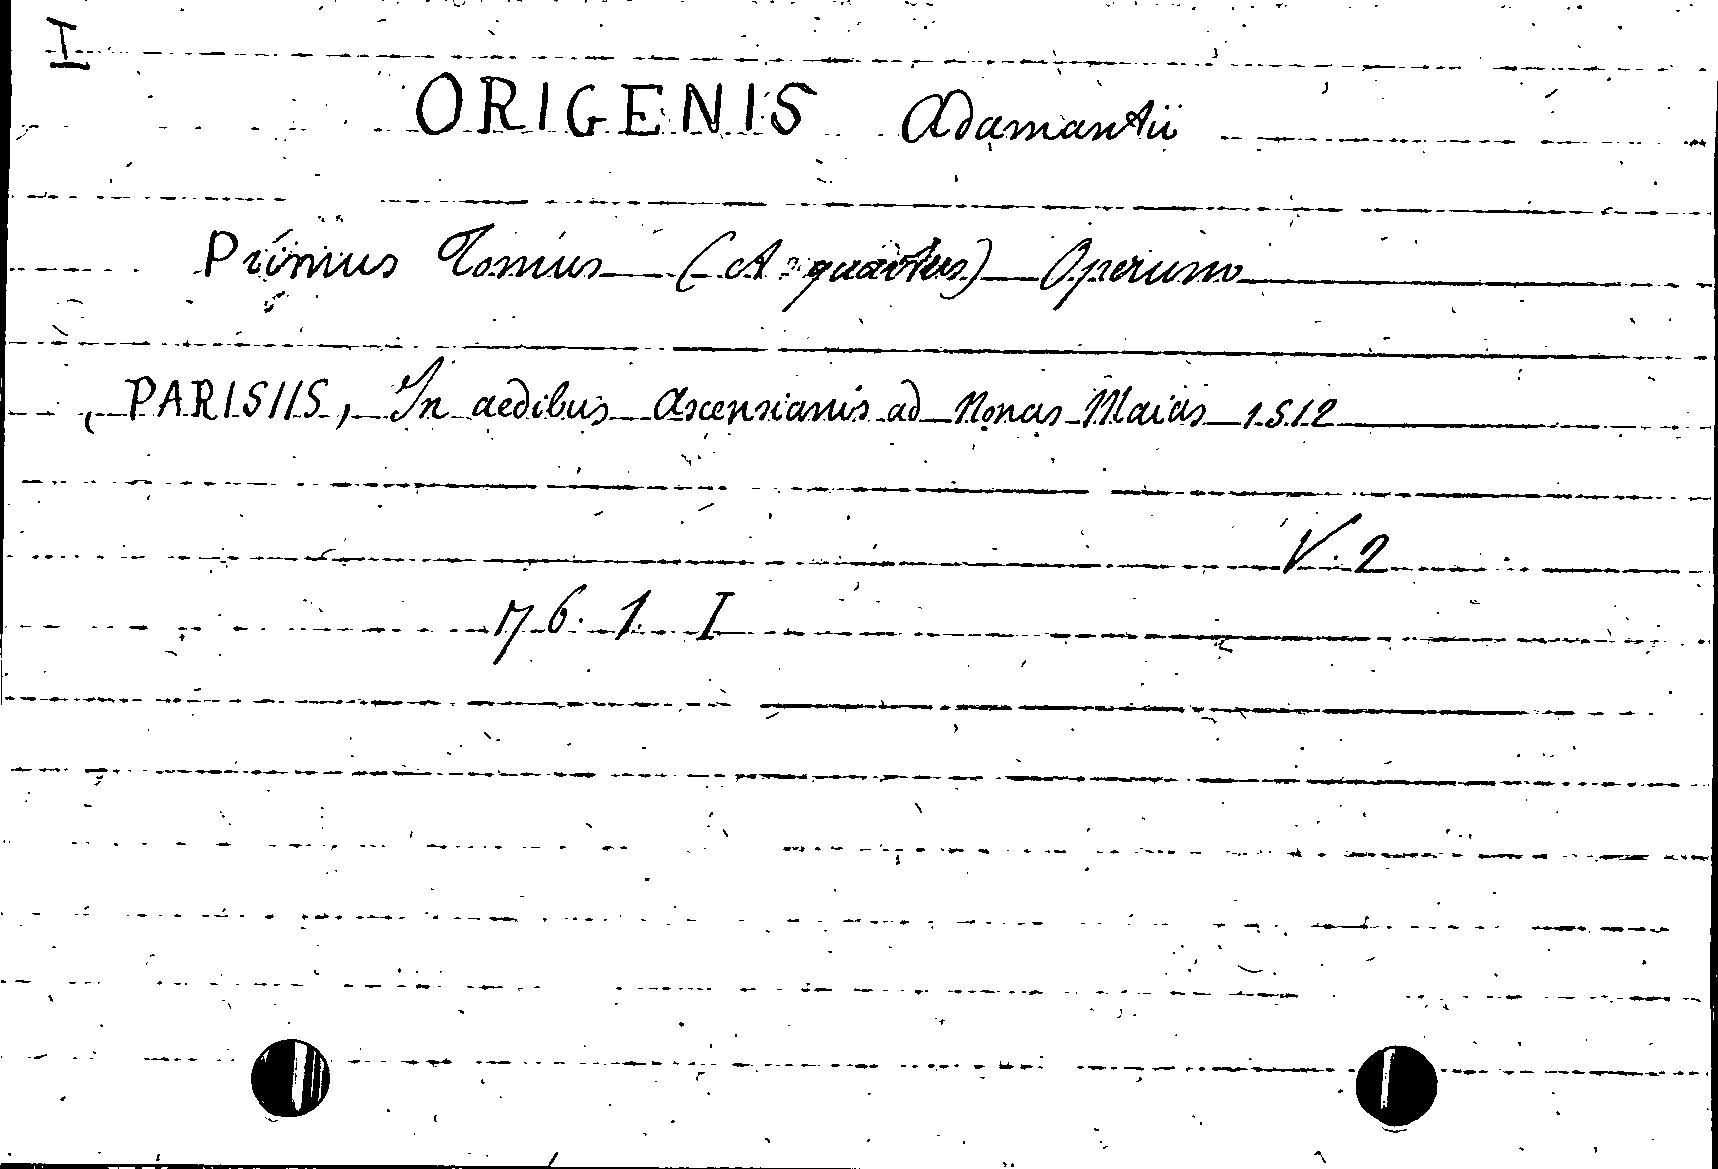 I
ORIGENIS Adamantii
Primus Tomus (et quartus) Operum
PARISIIS, In aedibus Ascensianis ad Nonas Maias 1512
V. 2
76. 1. I